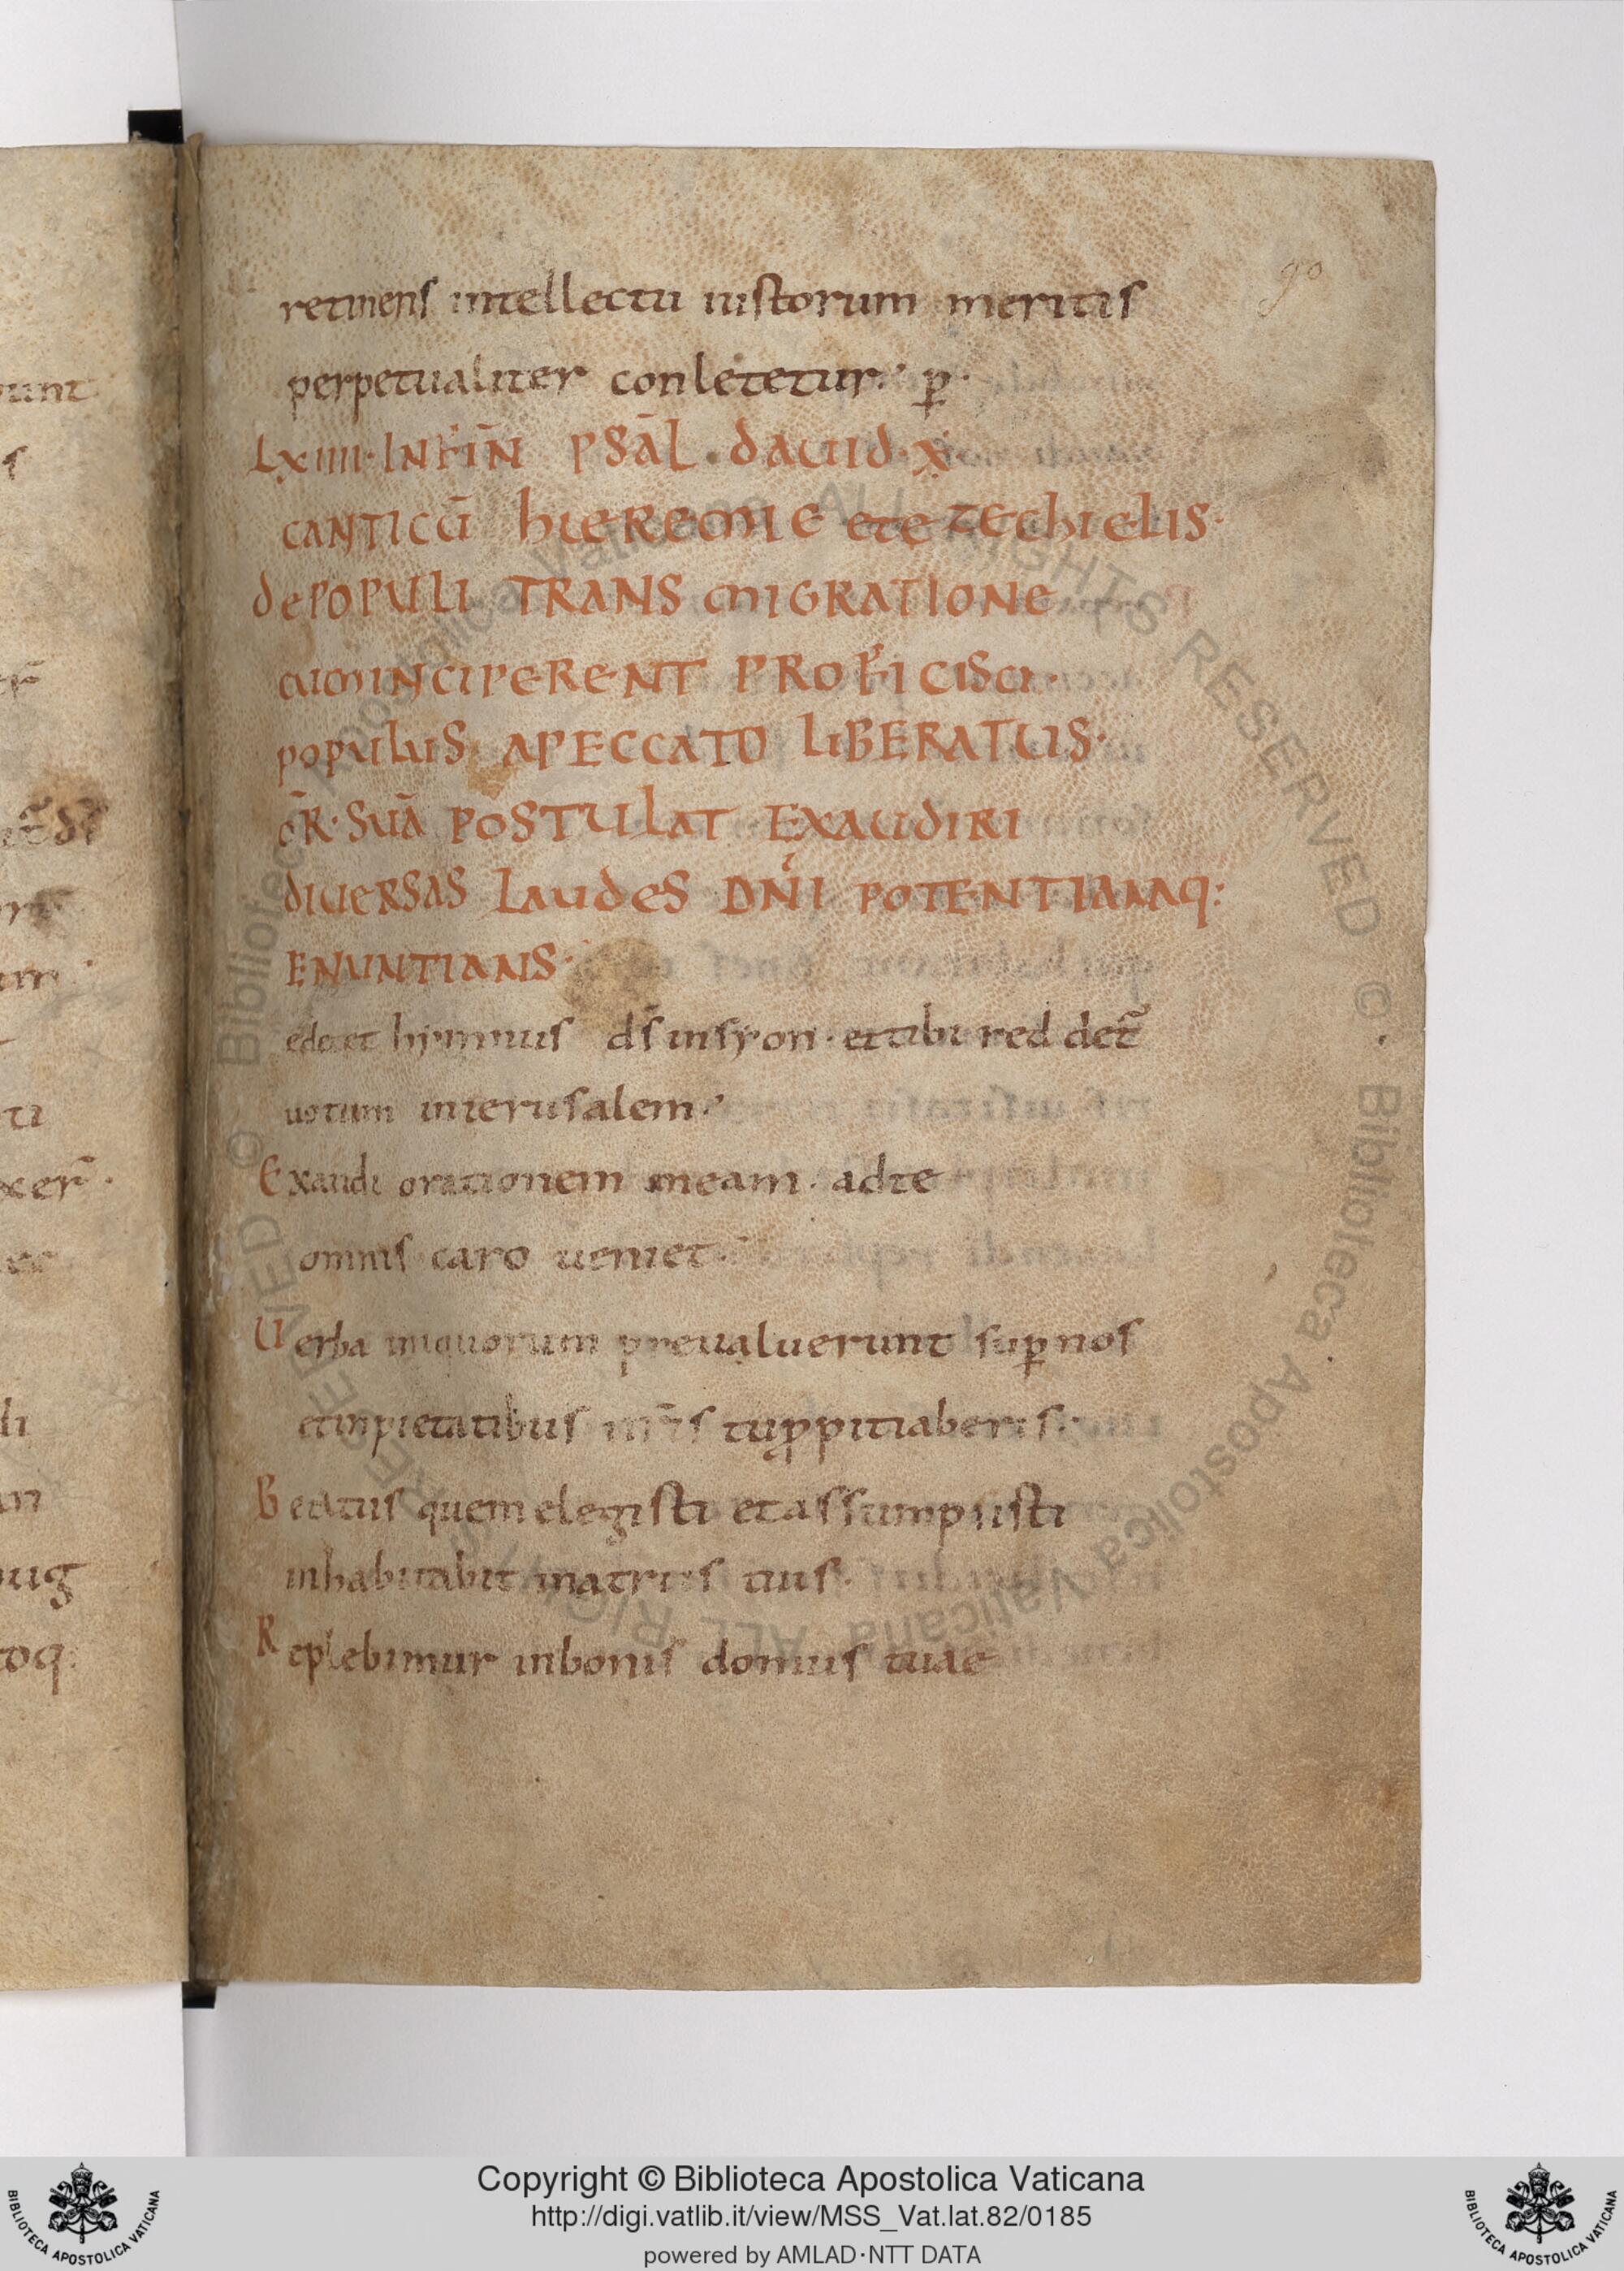 90
retinens intellectu iustorum meritis
perpetualiter conletetur. p̱.
LXIIII. IN FIN̄ PSĀL. DAVID. X
CANTICŪ hIEREMIE ETEZEChIELIS.
DEPOPULI TRANSMIGRATIONE
CUMINCIPERENT PROFICISCI.
POPULUS APECCATO LIBERATUS.
OR̄. SUĀ POSTULAT EXAUDIRI
DIVERSAS LAUDES DN̄I POTENTIAMQ:
ENUNTIANS.
edecet hymnus ds̄ insyon. ettibi reddet̄
uotum inierusalem.
Exaudi orationem meam. adte
omnis caro ueniet.
Uerba iniquorum preualuerunt suꝑnos
etimpietatibus nr̄is tuꝓpitiaberis.
Beatus quem elegisti etassumpsisti
inhabitabit inatriis tuis.
Replebimur inbonis domus tuae
Copyright © Biblioteca Apostolica Vaticana
http://digi.vatlib.it/view/MSS_Vat.lat.82/0185
powered by AMLAD·NTT DATA
BIBLIOTECA APOSTOLICA VATICANA
BIBLIOTECA APOSTOLICA VATICANA